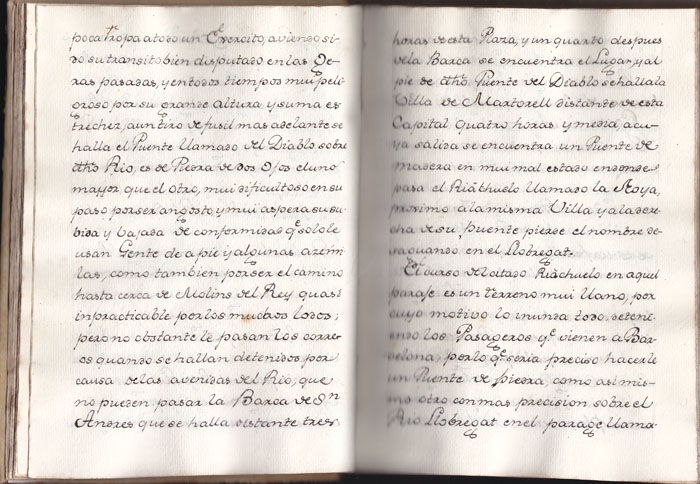 poca tropa a todo un Exercito, aviendo si-
do su transito bien disputado en las Gue-
rras pasadas, y en todos tiempos mui peli-
groso por su grande altura y suma es
trechez, a un tiro de fusil mas adelante se
halla el Puente llamado del Diablo sobre
dho Rio, es de Piedra de dos Ojos el uno
mayor que el otro, mui dificultoso en su
paso por ser angosto, y mui aspera su su-
bida y bajada de conformidad qe solo le
usan Gente de a pie y algunas azemi
las, como tambien por ser el camino
hasta cerca de Molins del Rey quasi
inpracticable por los muchos lodos;
pero no obstante le pasan los corre-
os quando se hallan detenidos por
causa de las avenidas del Rio, que
no pueden pasar la Barca de Sn
Andres que se halla distante tres
horas de esta Plaza, y un quarto despues
de la Barca se encuentra el Lugar, y al
pie de dho Puente del Diablo se halla la
Villa de Martorell distante de esta
Capital quatro horas y media, a cu-
ya salida se encuentra un Puente de
madera en mui mal estado en donde
pasa el Riachuelo llamado la Noya,
proximo a la misma Villa y a la dere-
cha de su Puente pierde el nombre de-
saguando en el Llobregat.
El curso del citado Riachuelo en aquel
paraje es un terreno mui llano, por
cuyo motivo lo inunda todo, detení-
endo los Pasageros qe vienen a Bar-
celona, por lo qe seria preciso hacerle
un Puente de piedra, como asi mis-
mo otro con mas precision sobre el
Rio Llobregat en el parage llama-